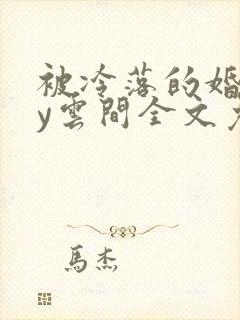 被冷落的婚
y雲間全文
馬杰